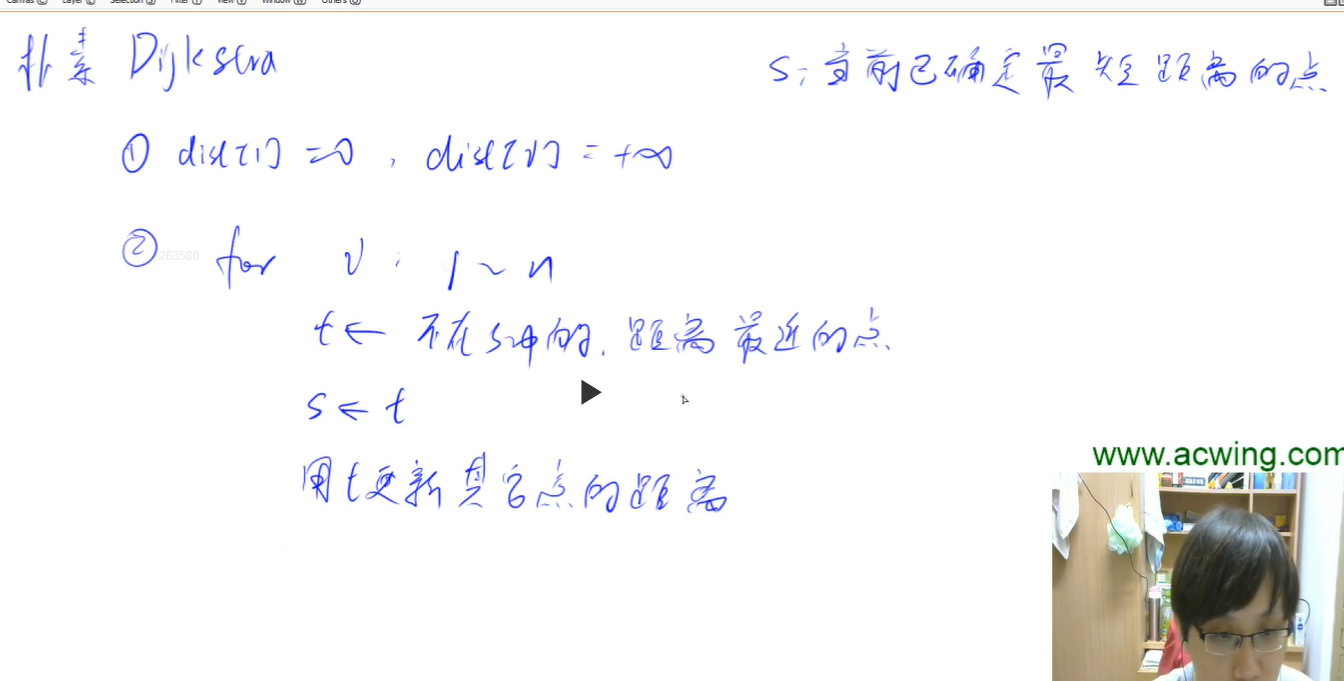 Canvas Layer Selection Filter View Window Others
朴素 Dijkstra
S: 当前已确定最短距离的点
① dist[1] = 0, dist[v] = +∞
② for v: 1 ~ n
263580
t ← 不在S中的, 距离最近的点.
S ← t
用t更新其它点的距离
www.acwing.com